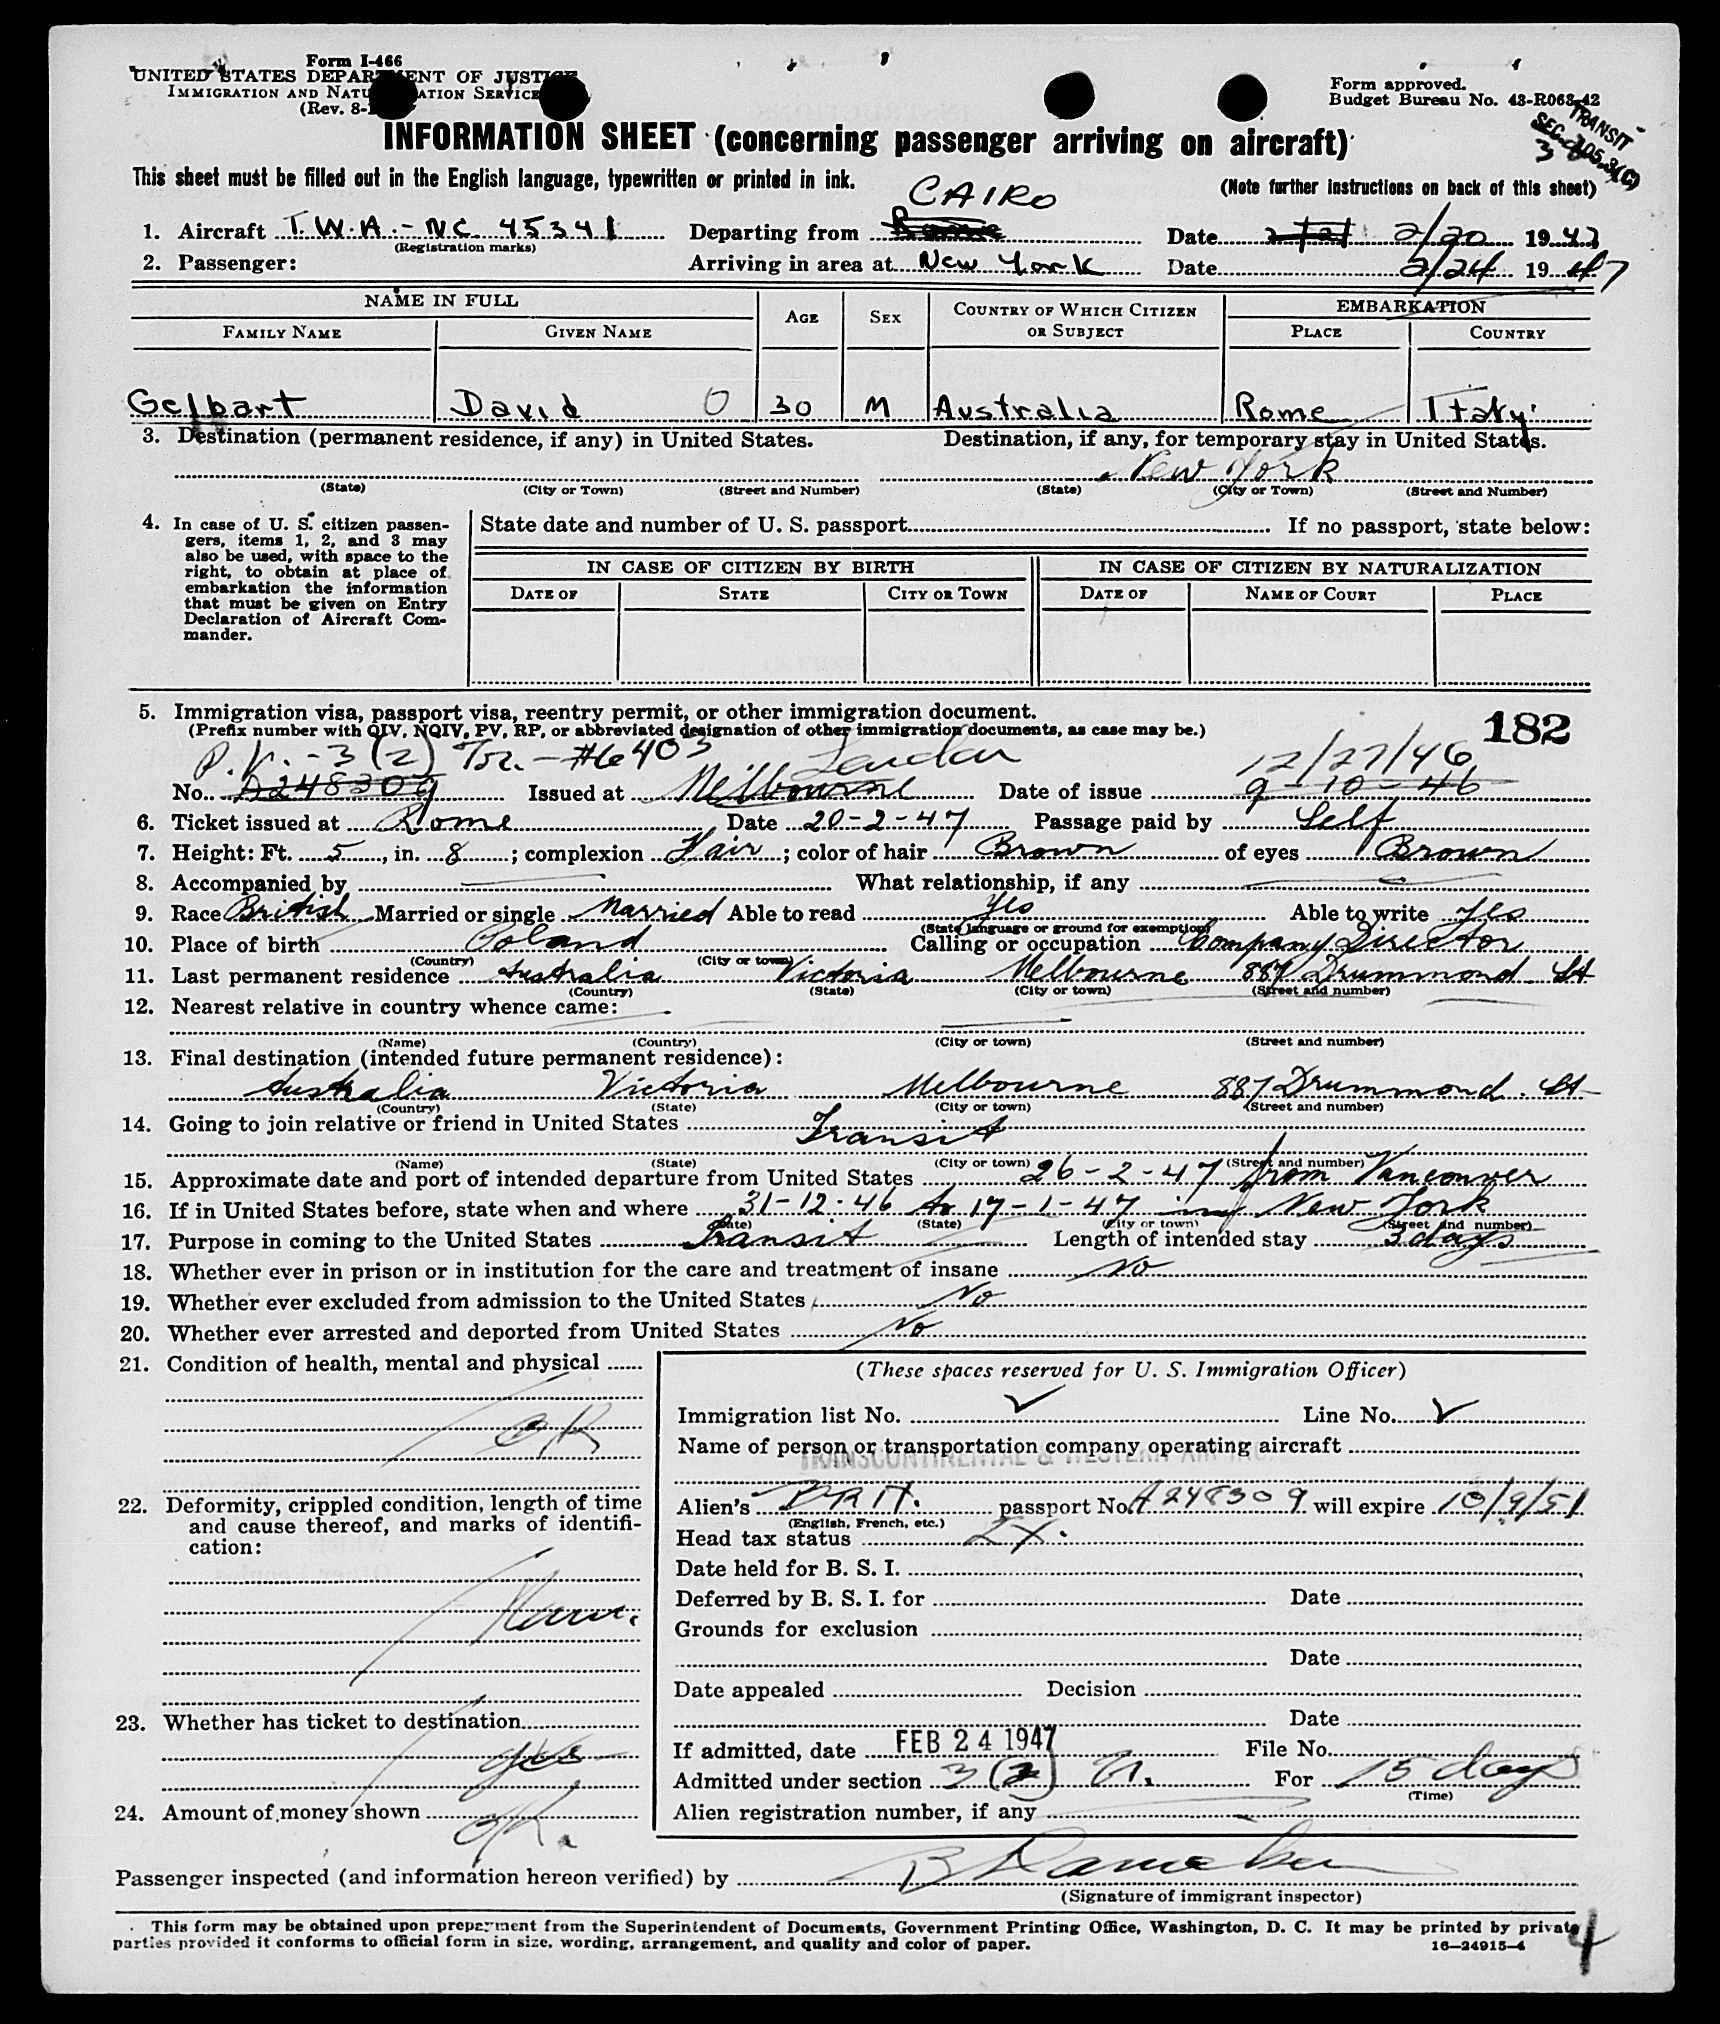 Form I-466
UNITED STATES DEPARTMENT OF JUSTICE
IMMIGRATION AND NATURALIZATION SERVICE
(Rev. 8-
Form approved.
Budget Bureau No. 43-R063-42
TRANSIT
SEC. 105.3(C)
INFORMATION SHEET (concerning passenger arriving on aircraft)
This sheet must be filled out in the English language, typewritten or printed in ink.
(Note further instructions on back of this sheet)
CAIRO
1. Aircraft T.W.A. - NC 45341 Departing from Rome Date 2/20 1947
(Registration marks)
2. Passenger: Arriving in area at New York Date 2/24 1947
NAME IN FULL AGE SEX COUNTRY OF WHICH CITIZEN OR SUBJECT EMBARKATION
FAMILY NAME GIVEN NAME PLACE COUNTRY
Gelbart David 0 30 M Australia Rome Italy
3. Destination (permanent residence, if any) in United States. Destination, if any, for temporary stay in United States.
New York
(State) (City or Town) (Street and Number) (State) (City or Town) (Street and Number)
4. In case of U. S. citizen passengers, items 1, 2, and 3 may also be used, with space to the right, to obtain at place of embarkation the information that must be given on Entry Declaration of Aircraft Commander.
State date and number of U. S. passport If no passport, state below:
IN CASE OF CITIZEN BY BIRTH IN CASE OF CITIZEN BY NATURALIZATION
DATE OF STATE CITY OR TOWN DATE OF NAME OF COURT PLACE
5. Immigration visa, passport visa, reentry permit, or other immigration document.
(Prefix number with QIV, NQIV, PV, RP, or abbreviated designation of other immigration documents, as case may be.)
182
P.V. - 3(2) Tr. - #6403 London 12/27/46
No. A248309 Issued at Melbourne Date of issue 9-10-46
6. Ticket issued at Rome Date 20-2-47 Passage paid by Self
7. Height: Ft. 5, in. 8; complexion Fair; color of hair Brown of eyes Brown
8. Accompanied by What relationship, if any
9. Race British Married or single Married Able to read Yes Able to write Yes
(State language or ground for exemption)
10. Place of birth Poland Calling or occupation Company Director
(Country) (City or town)
11. Last permanent residence Australia Victoria Melbourne 887 Drummond St
(Country) (State) (City or town) (Street and number)
12. Nearest relative in country whence came:
(Name) (Country) (City or town) (Street and number)
13. Final destination (intended future permanent residence):
Australia Victoria Melbourne 887 Drummond St
(Country) (State) (City or town) (Street and number)
14. Going to join relative or friend in United States Transit
(Name) (State) (City or town) (Street and number)
15. Approximate date and port of intended departure from United States 26-2-47 from Vancouver
16. If in United States before, state when and where 31-12-46 to 17-1-47 in New York
(Date) (State) (City or town) (Street and number)
17. Purpose in coming to the United States Transit Length of intended stay 3 days
18. Whether ever in prison or in institution for the care and treatment of insane No
19. Whether ever excluded from admission to the United States No
20. Whether ever arrested and deported from United States No
21. Condition of health, mental and physical
OK
22. Deformity, crippled condition, length of time and cause thereof, and marks of identification:
None.
23. Whether has ticket to destination
yes
24. Amount of money shown OK.
(These spaces reserved for U. S. Immigration Officer)
Immigration list No. Line No.
Name of person or transportation company operating aircraft
TRANSCONTINENTAL & WESTERN AIR INC.
Alien's BRIT. passport No. A248309 will expire 10/9/51
(English, French, etc.)
Head tax status EX.
Date held for B. S. I.
Deferred by B. S. I. for Date
Grounds for exclusion
Date
Date appealed Decision
Date
If admitted, date FEB 24 1947 File No.
Admitted under section 3(2) For 15 days
(Time)
Alien registration number, if any
Passenger inspected (and information hereon verified) by
(Signature of immigrant inspector)
This form may be obtained upon prepayment from the Superintendent of Documents, Government Printing Office, Washington, D. C. It may be printed by private
parties provided it conforms to official form in size, wording, arrangement, and quality and color of paper.
16—24915-4
4